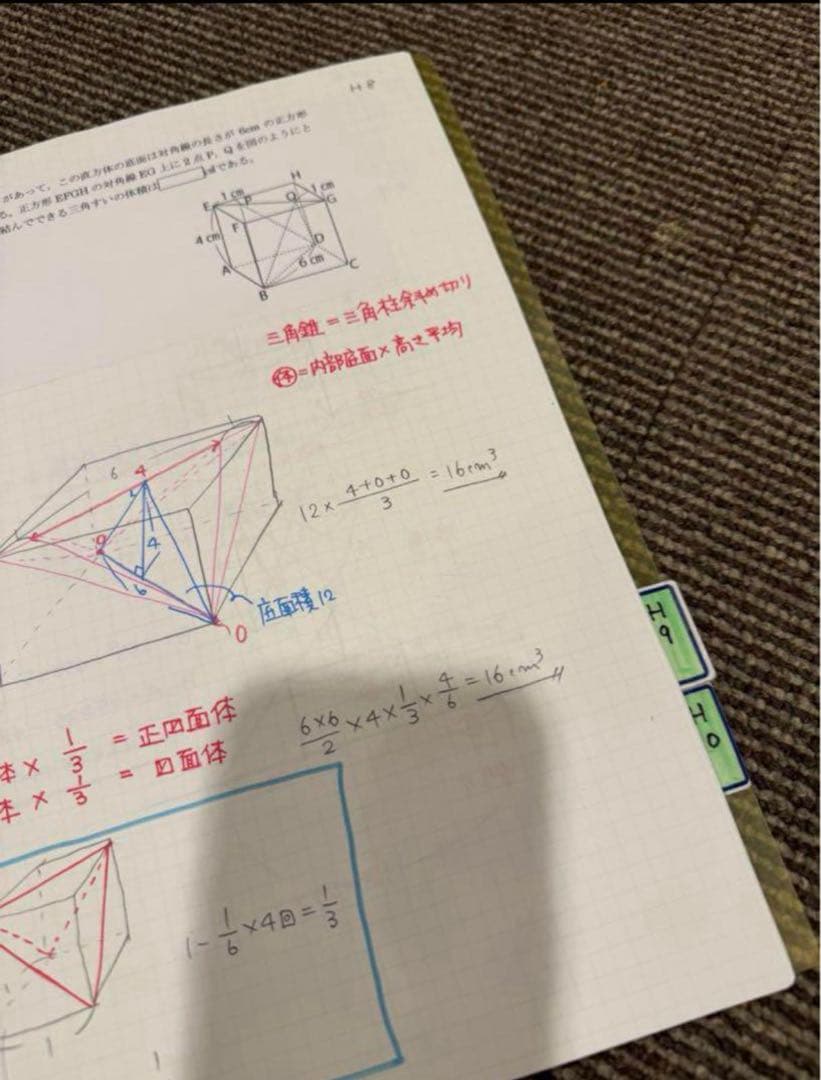 H8
があって、この直方体の底面は対角線の長さが6cmの正方形
る。正方形EFGHの対角線EG上に2点P、Qを図のようにと
結んでできる三角すいの体積は
である。
H
1cm
1cm
E
P
Q
G
F
4cm
D
A
6cm
C
B
三角錐=三角柱斜め切り
体=内部底面×高さ平均
6
4
12×(4+0+0)/3=16cm³
0
4
6
底面積12
0
H9
体×1/3=正四面体
(6×6)/2×4×1/3×4/6=16cm³
H0
体×1/3=四面体
1-1/6×4回=1/3
1
1